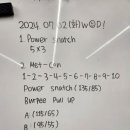 2024. 07. 02 (화) W.O.D!
1. Power snatch
5 x 3
2. Met-Con
1-2-3-4-5-6-7-8-9-10
Power snatch (135/85)
Burpee Pull up
A (115/65)
B (95/55)